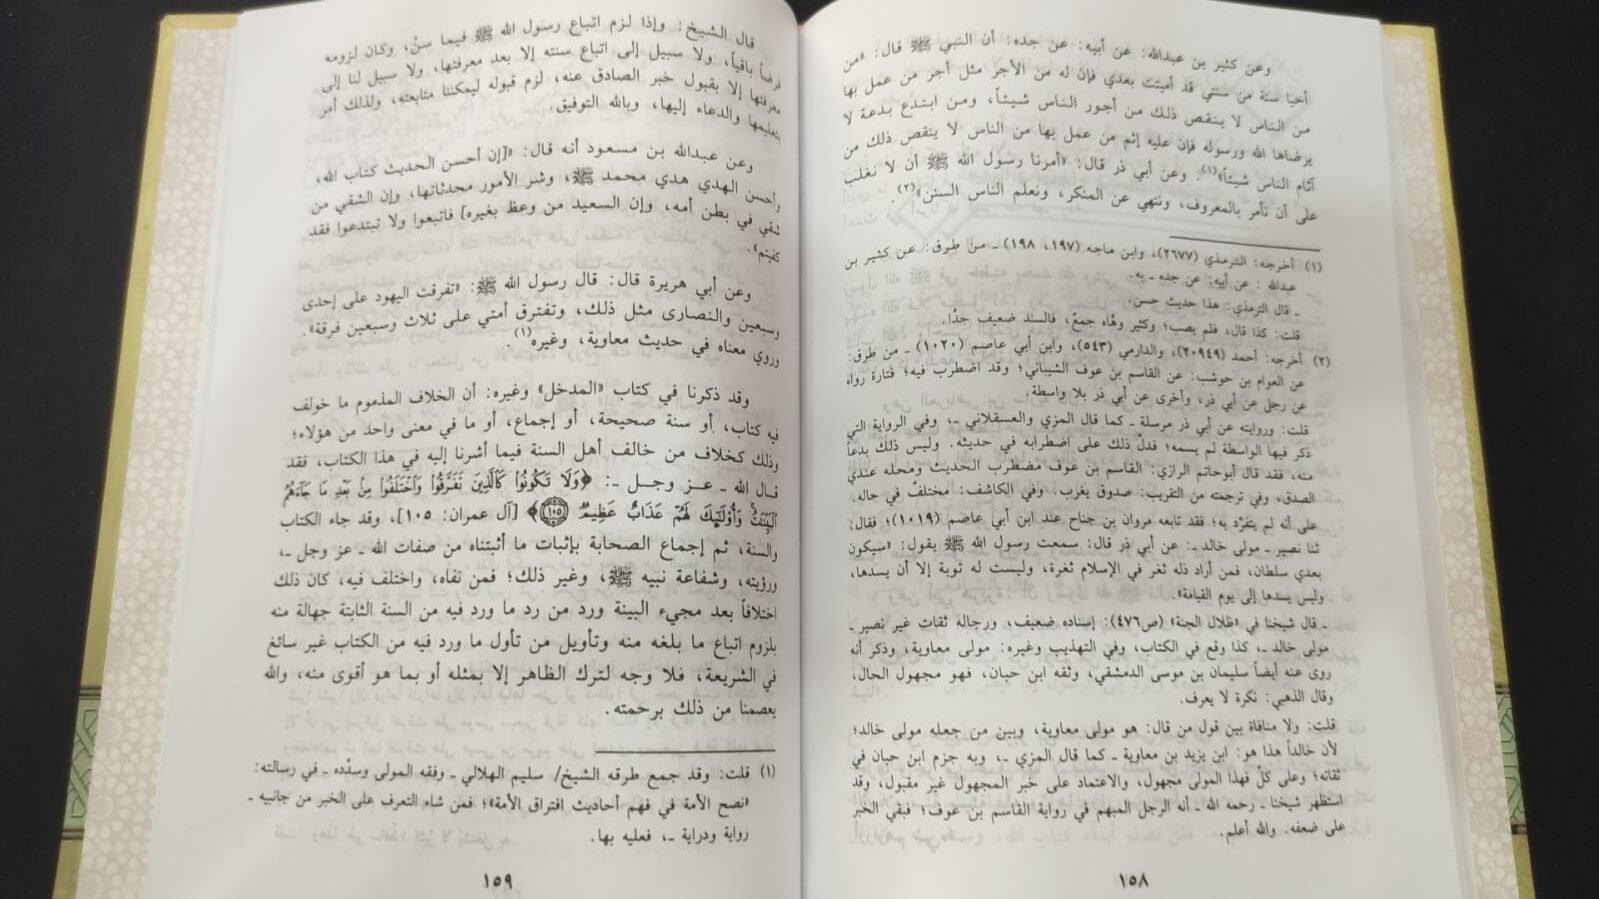 وعن كثير بن عبدالله: عن أبيه: عن جده: أن النبي ﷺ قال: «من
أحيا سنة من سنتي قد أميتت بعدي فإن له من الأجر مثل أجر من عمل بها
من الناس لا ينقص ذلك من أجور الناس شيئاً، ومن ابتدع بدعة لا
يرضاها الله ورسوله فإن عليه إثم من عمل بها من الناس لا ينقص ذلك من
آثام الناس شيئاً»(١). وعن أبي ذر قال: «أمرنا رسول الله ﷺ أن لا نغلب
على أن نأمر بالمعروف، وننهي عن المنكر، ونعلم الناس السنن»(٢).
(١) أخرجه: الترمذي (٢٦٧٧)، وابن ماجه (١٩٧، ١٩٨) ـ من طرق: عن كثير بن
عبدالله: عن أبيه: عن جده ـ به.
ـ قال الترمذي: هذا حديث حسن.
قلت: كذا قال، فلم يصب؛ وكثير وهّاه جمعٌ، فالسند ضعيف جدًا.
(٢) أخرجه: أحمد (٢٠٩٤٩)، والدارمي (٥٤٣)، وابن أبي عاصم (١٠٢٠) ـ من طرق:
عن العوام بن حوشب: عن القاسم بن عوف الشيباني؛ وقد اضطرب فيه؛ فتارة رواه
عن رجل عن أبي ذر، وأخرى عن أبي ذر بلا واسطة.
قلت: وروايته عن أبي ذر مرسلة ـ كما قال المزي والعسقلاني ـ، وفي الرواية التي
ذكر فيها الواسطة لم يسمه؛ فدلّ ذلك على اضطرابه في حديثه. وليس ذلك بدعاً
منه، فقد قال أبوحاتم الرازي: القاسم بن عوف مضطرب الحديث ومحله عندي
الصدق، وفي ترجمته من التقريب: صدوق يغرب. وفي الكاشف: مختلفٌ في حاله.
على أنه لم يتفرّد به؛ فقد تابعه مروان بن جناح عند ابن أبي عاصم (١٠١٩)؛ فقال:
ثنا نصير ـ مولى خالد ـ: عن أبي ذر قال: سمعت رسول الله ﷺ يقول: «سيكون
بعدي سلطان، فمن أراد ذله ثغر في الإسلام ثغرة، وليست له توبة إلا أن يسدها،
وليس يسدها إلى يوم القيامة».
ـ قال شيخنا في «ظلال الجنة» (ص٤٧٦): إسناده ضعيف، ورجاله ثقات غير نصير ـ
مولى خالد ـ، كذا وقع في الكتاب، وفي التهذيب وغيره: مولى معاوية، وذكر أنه
روى عنه أيضاً سليمان بن موسى الدمشقي، وثقه ابن حبان، فهو مجهول الحال،
وقال الذهبي: نكرة لا يعرف.
قلت: ولا منافاة بين قول من قال: هو مولى معاوية، وبين من جعله مولى خالد؛
لأن خالداً هذا هو: ابن يزيد بن معاوية ـ كما قال المزي ـ، وبه جزم ابن حبان في
ثقاته؛ وعلى كلٍّ فهذا المولى مجهول، والاعتماد على خبر المجهول غير مقبول، وقد
استظهر شيخنا ـ رحمه الله ـ أنه الرجل المبهم في رواية القاسم بن عوف؛ فبقي الخبر
على ضعفه. والله أعلم.
١٥٨
قال الشيخ: وإذا لزم اتباع رسول الله ﷺ فيما سنّ، وكان لزومه
فرضاً باقياً، ولا سبيل إلى اتباع سنته إلا بعد معرفتها، ولا سبيل لنا إلى
معرفتها إلا بقبول خبر الصادق عنه، لزم قبوله ليمكننا متابعته، ولذلك أمر
بتعليمها والدعاء إليها، وبالله التوفيق.
وعن عبدالله بن مسعود أنه قال: «[إن أحسن الحديث كتاب الله،
وأحسن الهدي هدي محمد ﷺ، وشر الأمور محدثاتها، وإن الشقي من
شقي في بطن أمه، وإن السعيد من وعظ بغيره] فاتبعوا ولا تبتدعوا فقد
كفيتم».
وعن أبي هريرة قال: قال رسول الله ﷺ: «تفرقت اليهود على إحدى
وسبعين والنصارى مثل ذلك، وتفترق أمتي على ثلاث وسبعين فرقة».
وروي معناه في حديث معاوية، وغيره(١).
وقد ذكرنا في كتاب «المدخل» وغيره: أن الخلاف المذموم ما خولف
فيه كتاب، أو سنة صحيحة، أو إجماع، أو ما في معنى واحد من هؤلاء؛
وذلك كخلاف من خالف أهل السنة فيما أشرنا إليه في هذا الكتاب، فقد
قال الله ـ عز وجل ـ: ﴿وَلَا تَكُونُوا۟ كَٱلَّذِينَ تَفَرَّقُوا۟ وَٱخْتَلَفُوا۟ مِنۢ بَعْدِ مَا جَآءَهُمُ
ٱلْبَيِّنَـٰتُ وَأُو۟لَـٰٓئِكَ لَهُمْ عَذَابٌ عَظِيمٌ ١٠٥﴾ [آل عمران: ١٠٥]، وقد جاء الكتاب
والسنة، ثم إجماع الصحابة بإثبات ما أثبتناه من صفات الله ـ عز وجل ـ،
ورؤيته، وشفاعة نبيه ﷺ، وغير ذلك؛ فمن نفاه، واختلف فيه، كان ذلك
اختلافاً بعد مجيء البينة ورد من رد ما ورد فيه من السنة الثابتة جهالة منه
بلزوم اتباع ما بلغه منه وتأويل من تأول ما ورد فيه من الكتاب غير سائغ
في الشريعة، فلا وجه لترك الظاهر إلا بمثله أو بما هو أقوى منه، والله
يعصمنا من ذلك برحمته.
(١) قلت: وقد جمع طرقه الشيخ/ سليم الهلالي ـ وفقه المولى وسدّده ـ في رسالته:
«نصح الأمة في فهم أحاديث افتراق الأمة»؛ فمن شاء التعرف على الخبر من جانبيه ـ
رواية ودراية ـ، فعليه بها.
١٥٩